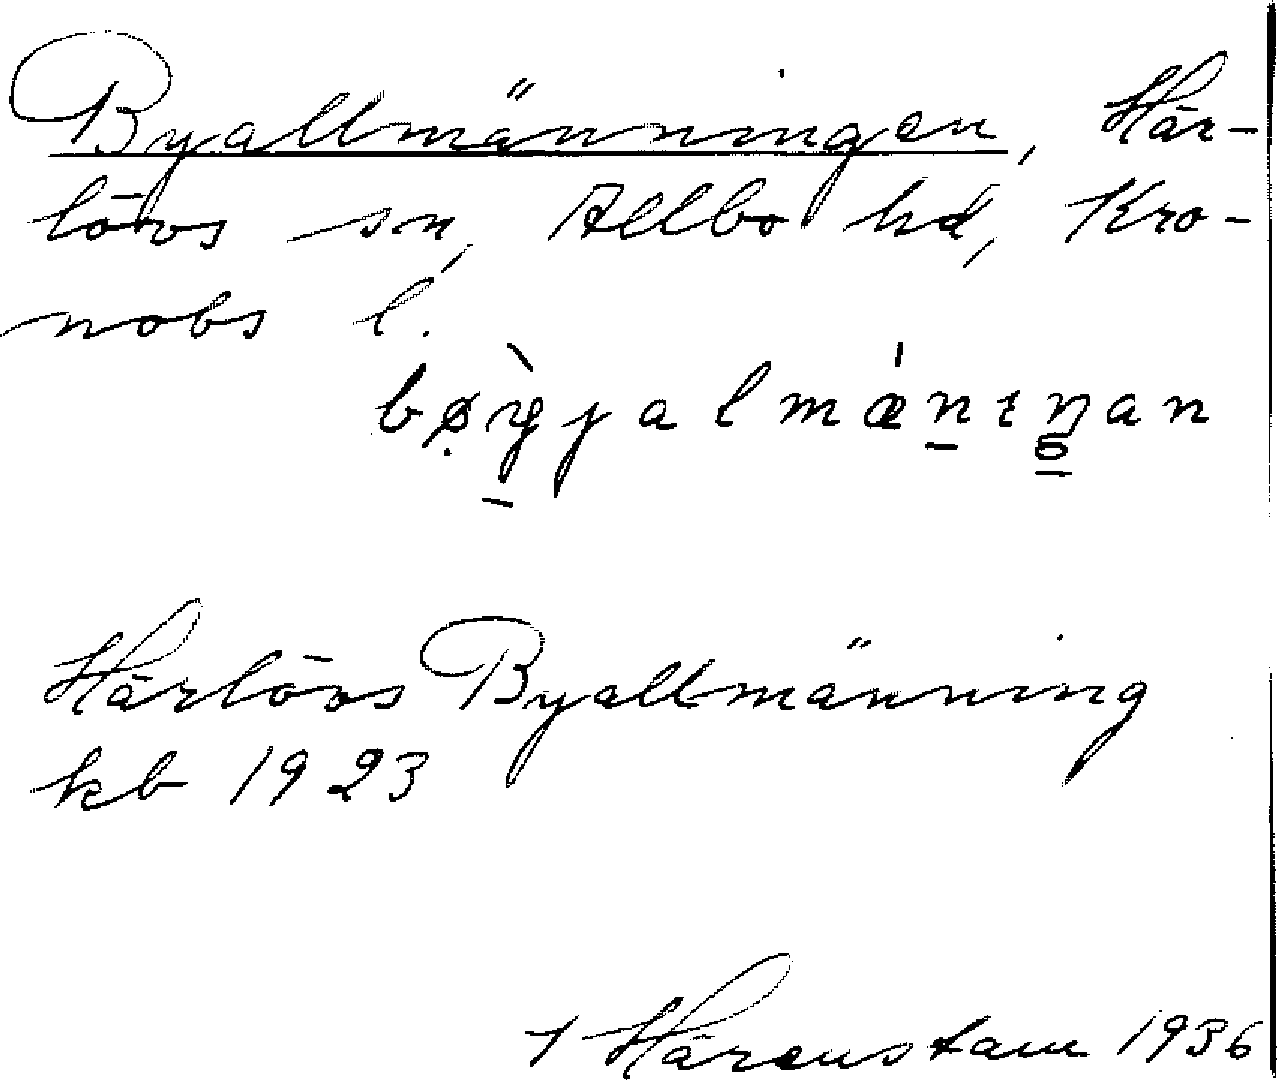 Byallmänningen, Här-
lövs sn, Allbo hd, Kro-
nobs l.
Härlövs Byallmänning
kb 1923
Härenstam 1936